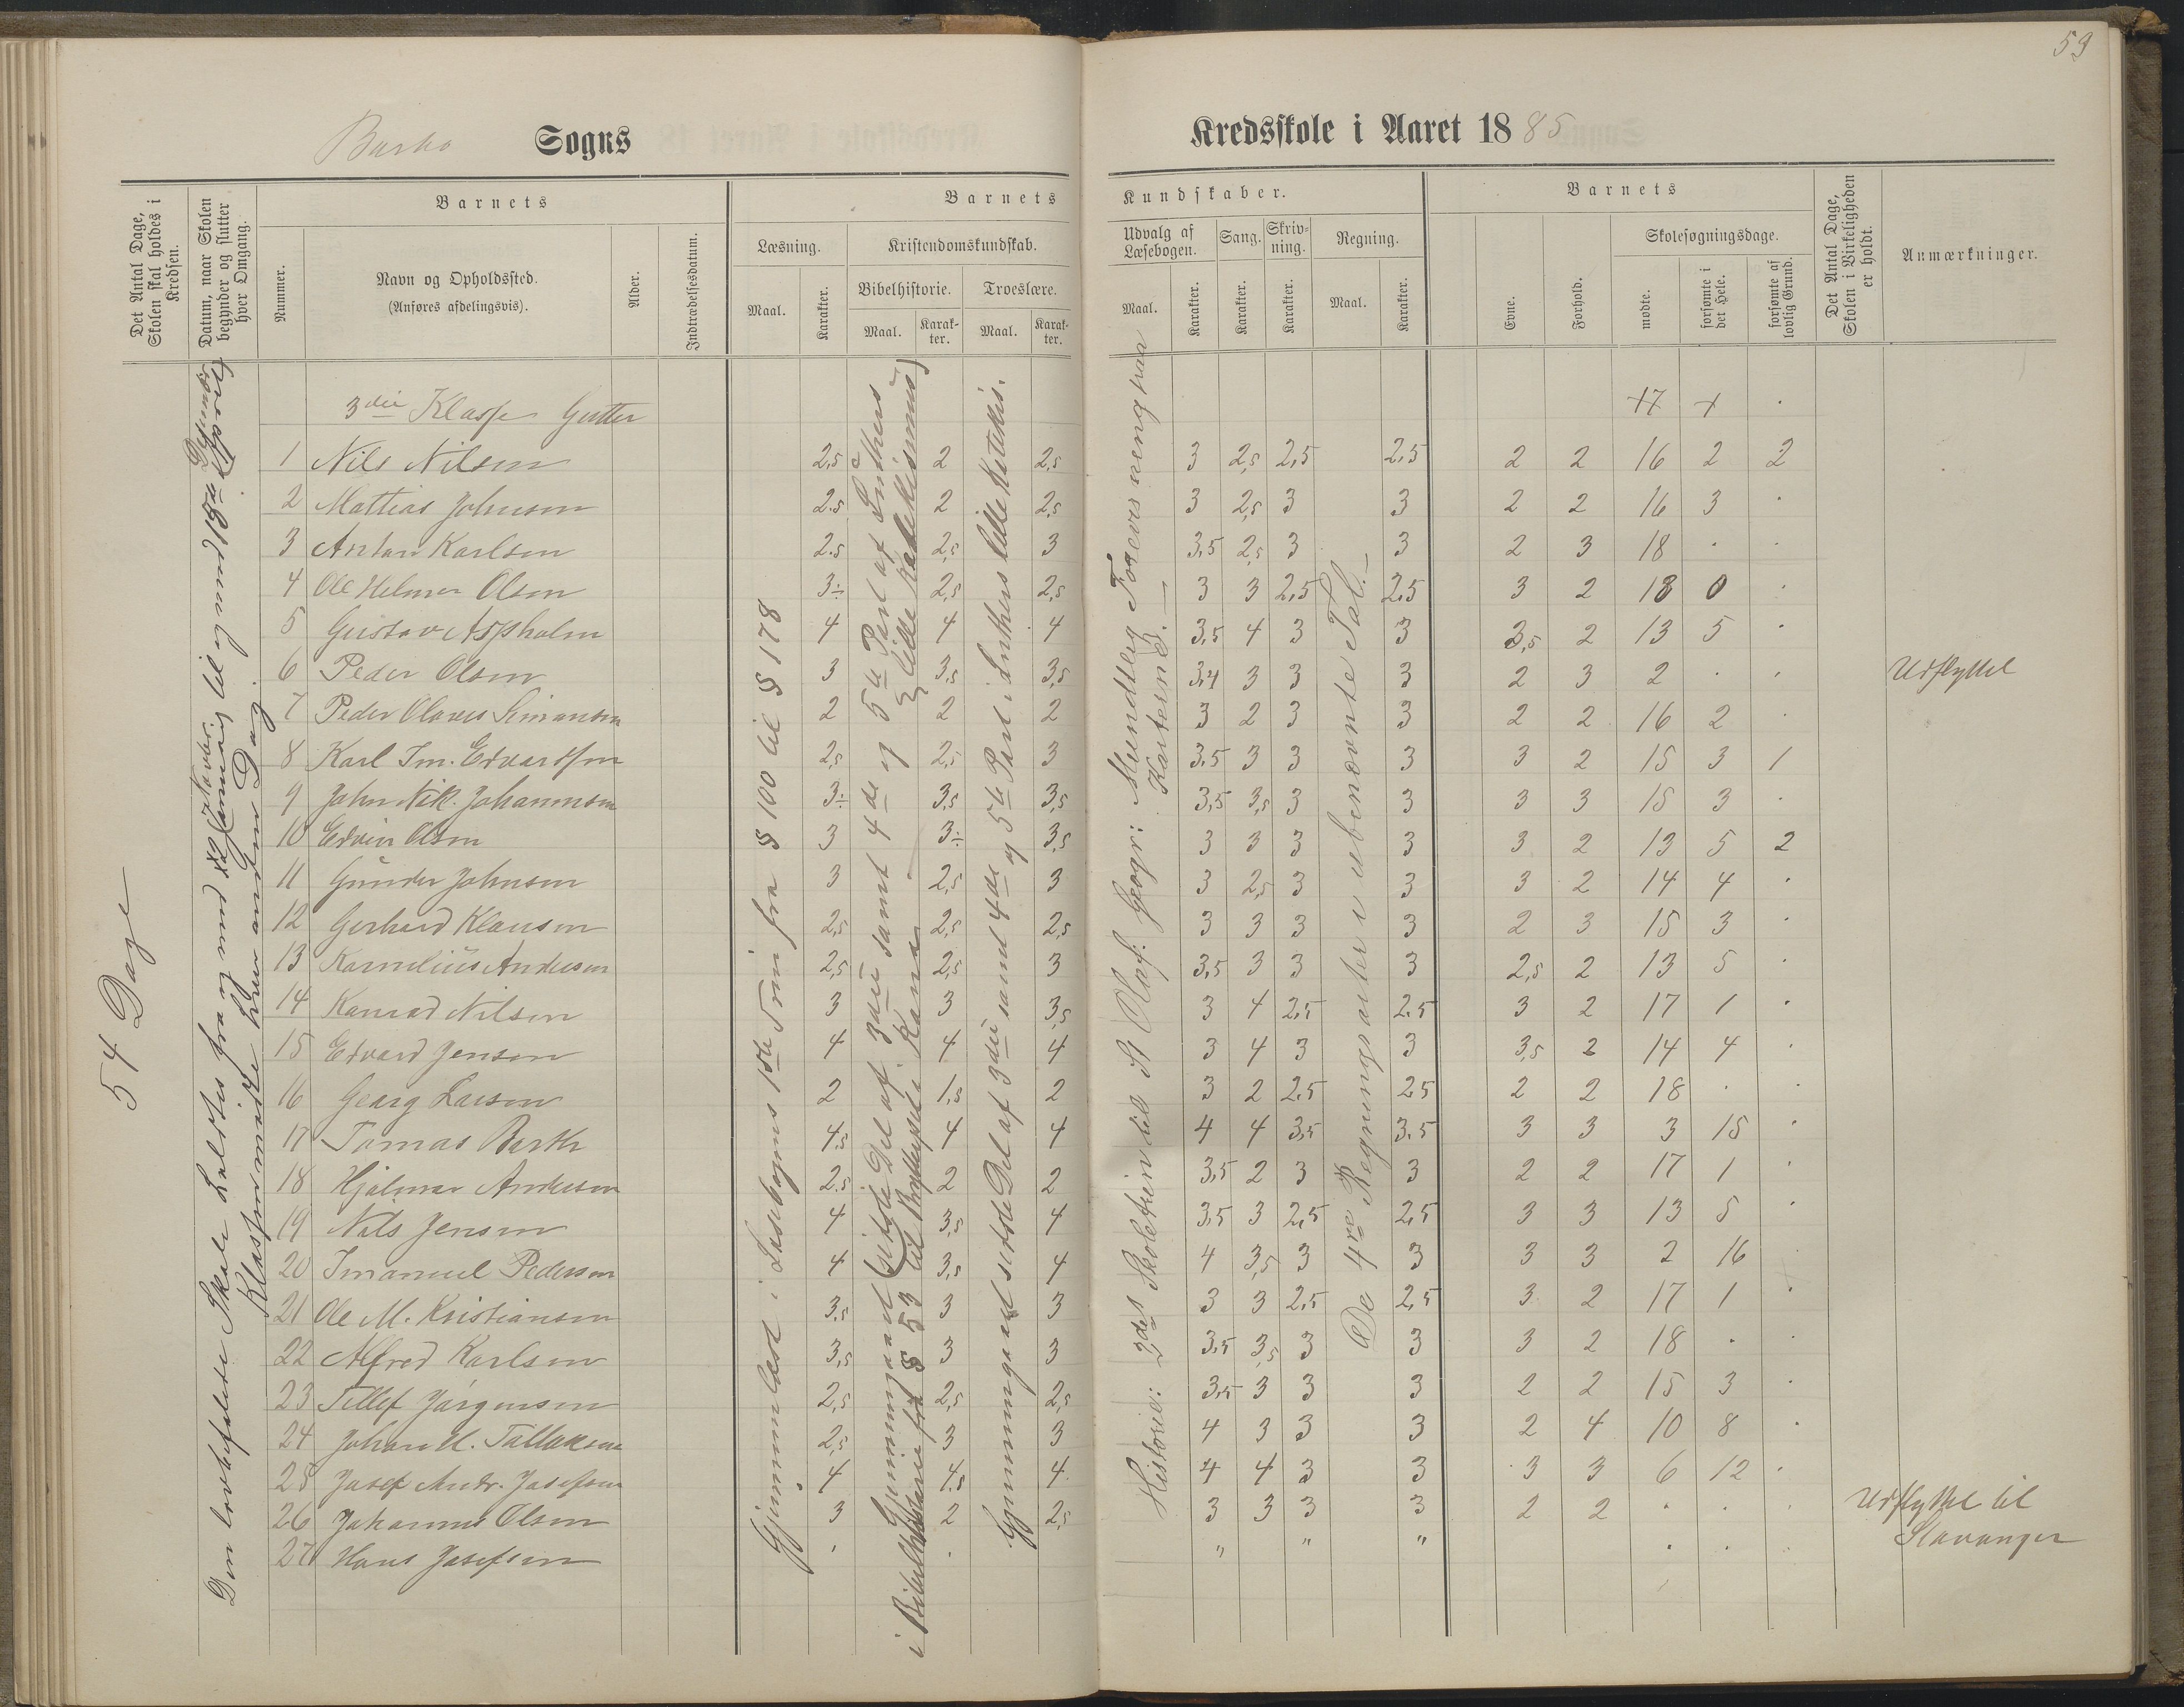 59
Barbo Sogns Kredsskole i Aaret 1885
Det Antal Dage, Skolen skal holdes i Kredsen.
Datum, naar Skolen begynder og slutter hver Omgang.
Barnets
Nummer.
Navn og Opholdssted.
(Anføres afdelingsvis).
Alder.
Indtrædelsesdatum.
Barnets Kundskaber.
Læsning.
Maal.
Karakter.
Kristendomskundskab.
Bibelhistorie.
Maal.
Karakter.
Troeslære.
Maal.
Karakter.
Udvalg af Læsebogen.
Maal.
Karakter.
Sang.
Karakter.
Skrivning.
Karakter.
Regning.
Maal.
Karakter.
Barnets
Evne.
Forhold.
Skolesøgningsdage.
mødte.
forsømte i det Hele.
forsømte af lovlig Grund.
Det Antal Dage, Skolen i Virkeligheden er holdt.
Anmærkninger.
54 Dage
Den lovbefalede Skole holdtes fra og med
Klassen mødte hver anden Dag.
Gjennemlæst i Læsebogens 1ste Trin fra § 100 til § 178
Gjennemgaaet sidste Del af 3die samt 4de og 5te Part af Luthers lille Katekismus)
i Bibelhistorie fra § 53 til Brylluppet i Kana
Gjennemgaaet sidste Del af 3die samt 4de og 5te Part i Luthers lille Katekis.
Historie: 2det Skoletrin til St Olaf. Geogr: Mundtlig Foreviisning paa Karterne. —
De 4re Regningsarter i ubenævnte Tal. —
3die Klasse Gutter 17 + .
1 Nils Nilsen 2,5 2 2,5 3 2,5 2,5 2,5 2 2 16 2 2
2 Mattias Johnsen 2.5 2 2,5 3 2,5 3 3 2 2 16 3 .
3 Anton Karlsen 2.5 2,5 3 3,5 2,5 3 3 2 3 18 . .
4 Ole Helmer Olsen 3÷ 2,5 2,5 3 3 2,5 2,5 3 2 18 0 .
5 Gustav Aspholm 4 4 4 3,5 4 3 3 3,5 2 13 5 .
6 Peder Olsen 3 3,5 3,5 3,4 3 3 3 2 3 2 . . Udflyttet
7 Peder Olaves Simonsen 2 2 2 3 2 3 3 2 2 16 2 .
8 Karl Im. Edvardsen 2,5 2,5 3 3.5 3 3 3 3 2 15 3 1
9 John Nik. Johannesen 3÷ 3,5 3,5 3,5 3,5 3 3 3 3 15 3 .
10 Edvin Olsen 3 3÷ 3,5 3 3 3 3 3 2 13 5 2
11 Gunder Johnsen 3 2,5 3 3 2,5 3 3 3 2 14 4 .
12 Gerhard Klausen 2,5 2,5 2,5 3 3 3 3 2 3 15 3 .
13 Kornelius Andersen 2,5 2,5 3 3,5 3 3 3 2,5 2 13 5 .
14 Konrad Nilsen 3 3 3,5 3 4 2,5 2.5 3 2 17 1 .
15 Edvard Jensen 4 4 4 3 4 3 3 3,5 2 14 4 .
16 Georg Larsen 2 1,5 2 3 2 2.5 2.5 2 2 18 . .
17 Tomas Barth 4.5 4 4 4 4 3,5 3.5 3 3 3 15 .
18 Hjalmar Andersen 2.5 2 2 3,5 2 3 3 2 2 17 1 .
19 Nils Jensen 4 3,5 4 3,5 3 2,5 2,5 3 3 13 5 .
20 Imanuel Pedersen 4 3,5 4 4 3,5 3 3 3 3 2 16
21 Ole M. Kristiansen 3,5 3 3 3 3 2,5 2,5 3 2 17 1 .
22 Alfred Karlsen 3,5 3 3 3,5 3,5 3 3 3 2 18 . .
23 Tellef Jørgensen 2,5 2,5 2,5 3,5 3 3 3 2 2 15 3 .
24 Johan M. Tallaksen 2,5 3 3 4 3 3 3 2 4 10 8 .
25 Josef Andr. Josefsen 4 4.5 4. 4 4 3 3 3 3 6 12 .
26 Johannes Olsen 3 2 2,5 3 3 3 3 2 2 . . . Udflyttet til Stavanger
27 Hans Josefsen . . " " " . . .